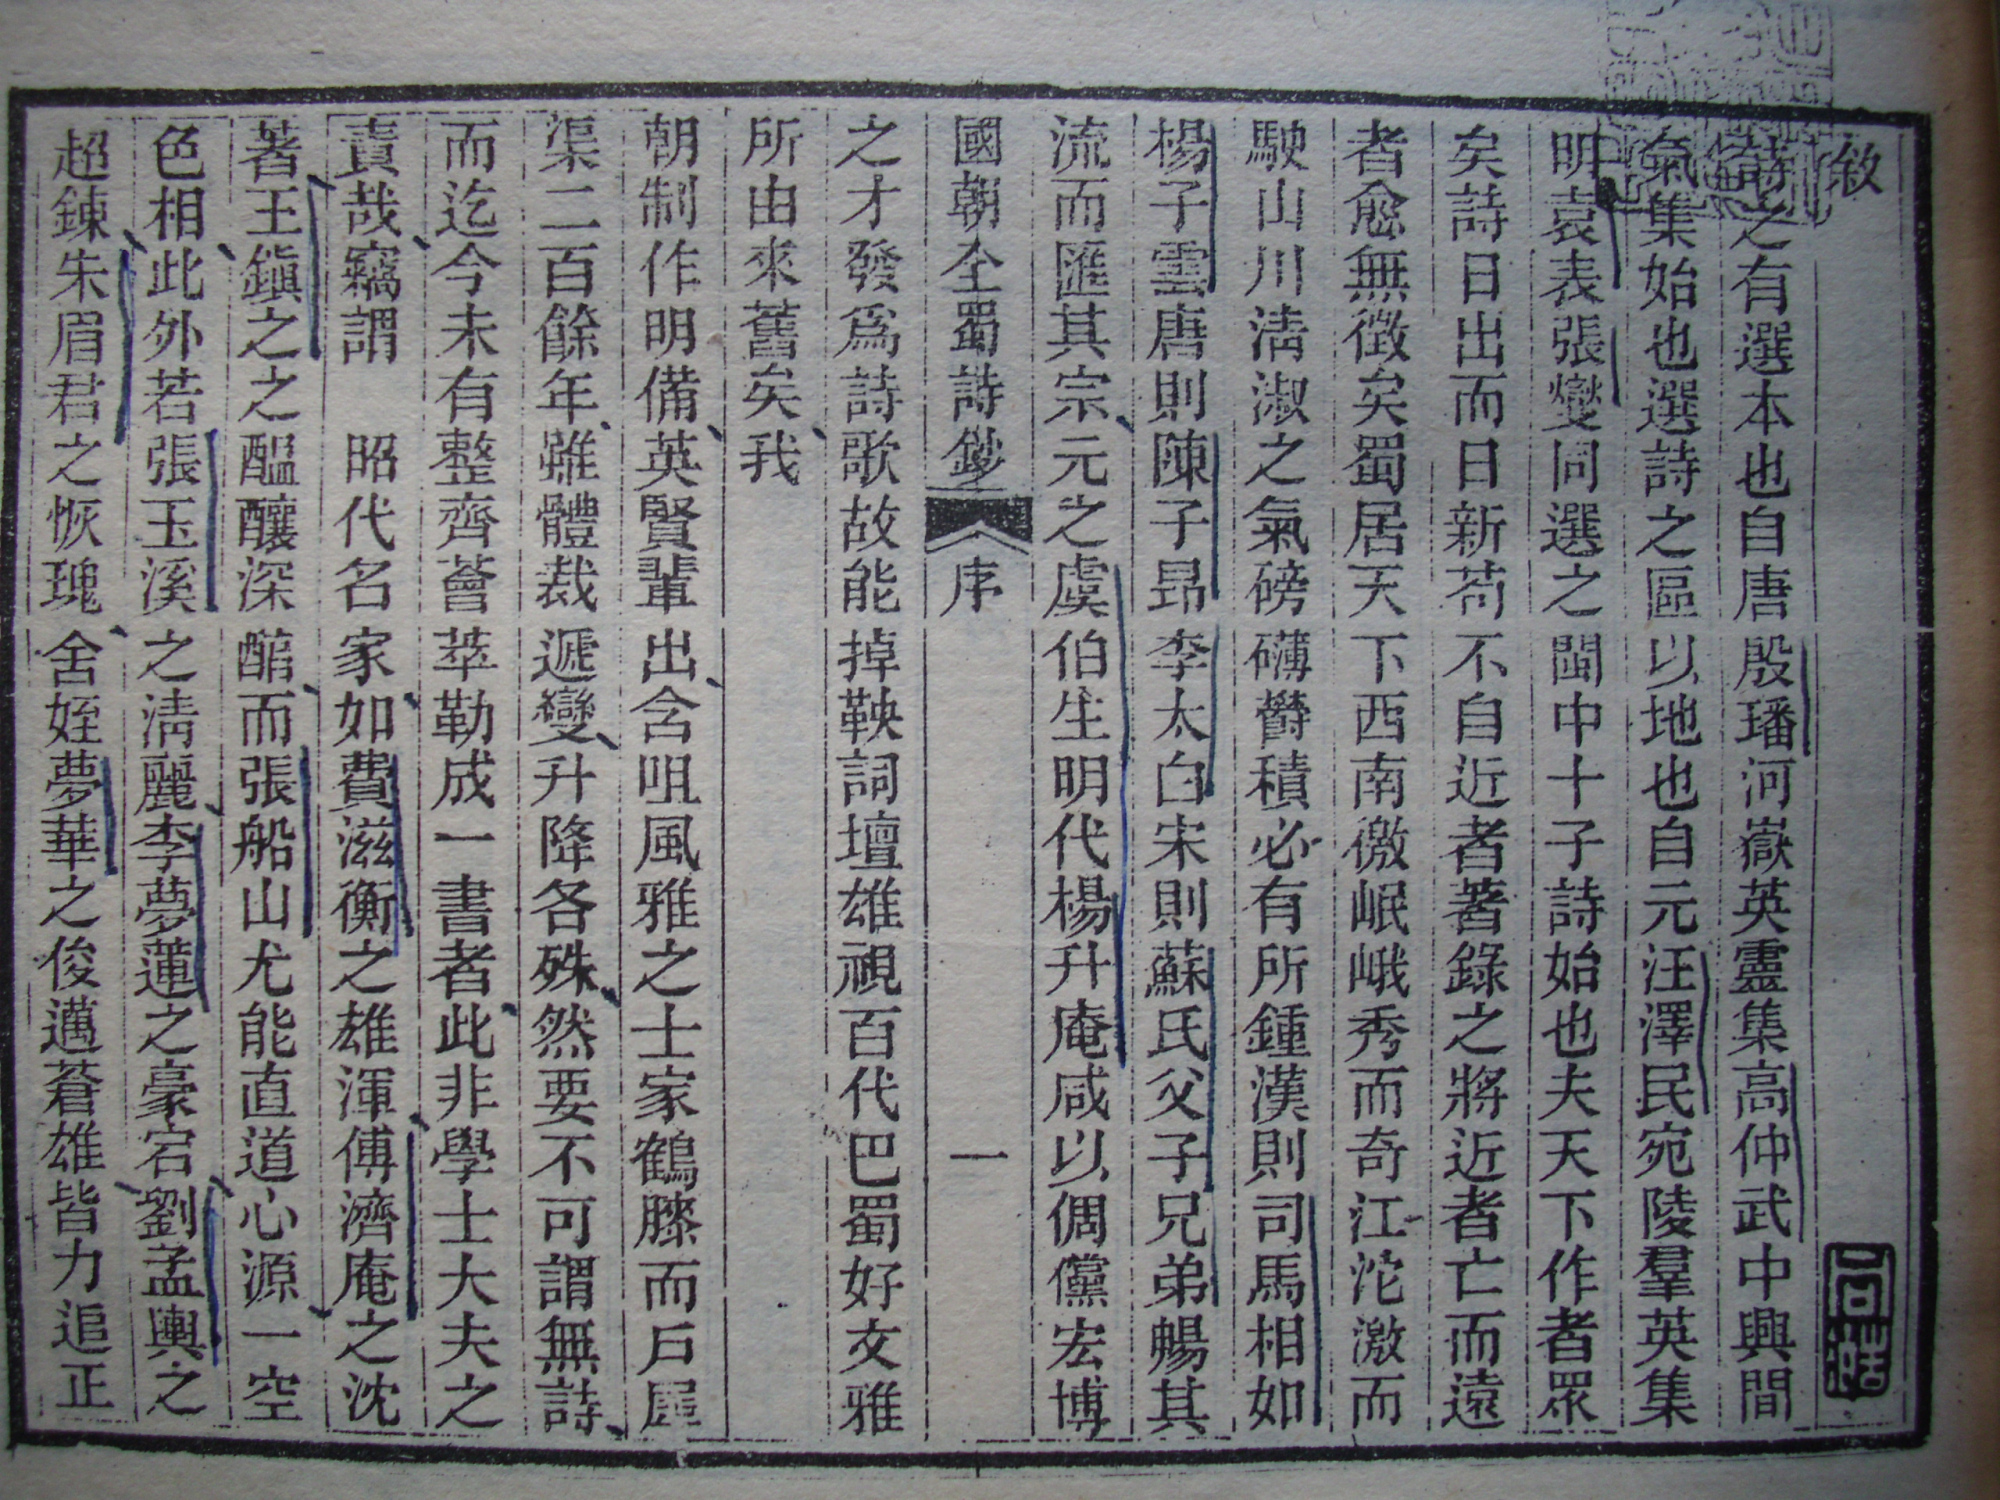 敘
詩之有選本也自唐殷璠河嶽英靈集高仲武中興間
氣集始也選詩之區以地也自元汪澤民宛陵羣英集
明袁表張燮同選之閩中十子詩始也夫天下作者眾
矣詩日出而日新苟不自近者著錄之將近者亡而遠
者愈無徵矣蜀居天下西南徼岷峨秀而奇江沱激而
駛山川淸淑之氣磅礴鬱積必有所鍾漢則司馬相如
楊子雲唐則陳子昂李太白宋則蘇氏父子兄弟暢其
流而匯其宗元之虞伯生明代楊升庵咸以倜儻宏博
國朝全蜀詩鈔 序 一
之才發爲詩歌故能掉鞅詞壇雄視百代巴蜀好文雅
所由來舊矣我
朝制作明備英賢輩出含咀風雅之士家鶴膝而戶犀
渠二百餘年雖體裁遞變升降各殊然要不可謂無詩
而迄今未有整齊薈萃勒成一書者此非學士大夫之
責哉竊謂 昭代名家如費滋衡之雄渾傅濟庵之沈
著王鎭之之醖釀深醇而張船山尤能直道心源一空
色相此外若張玉溪之淸麗李夢蓮之豪宕劉孟輿之
超鍊朱眉君之恢瑰舍姪夢華之俊邁蒼雄皆力追正